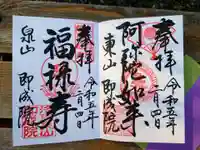 奉拝
令和五年
二月四日
阿弥陀如来
東山 即成院
奉拝
令和五年
二月四日
福禄寿
泉山 即成院